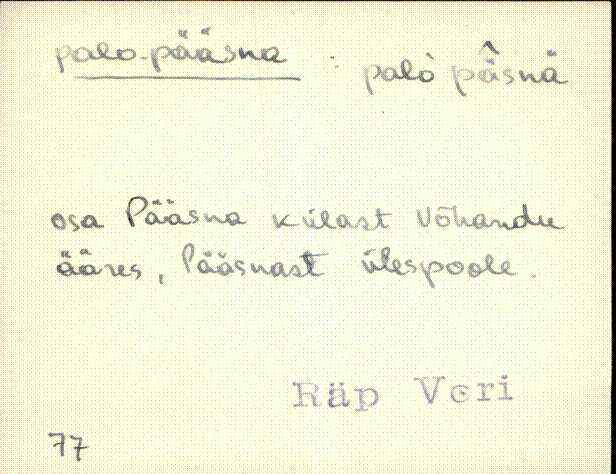 palo-pääsna : palò pä̂snä
osa Pääsna külast Võhandu
ääres, Pääsnast ülespoole.
Räp Veri
77